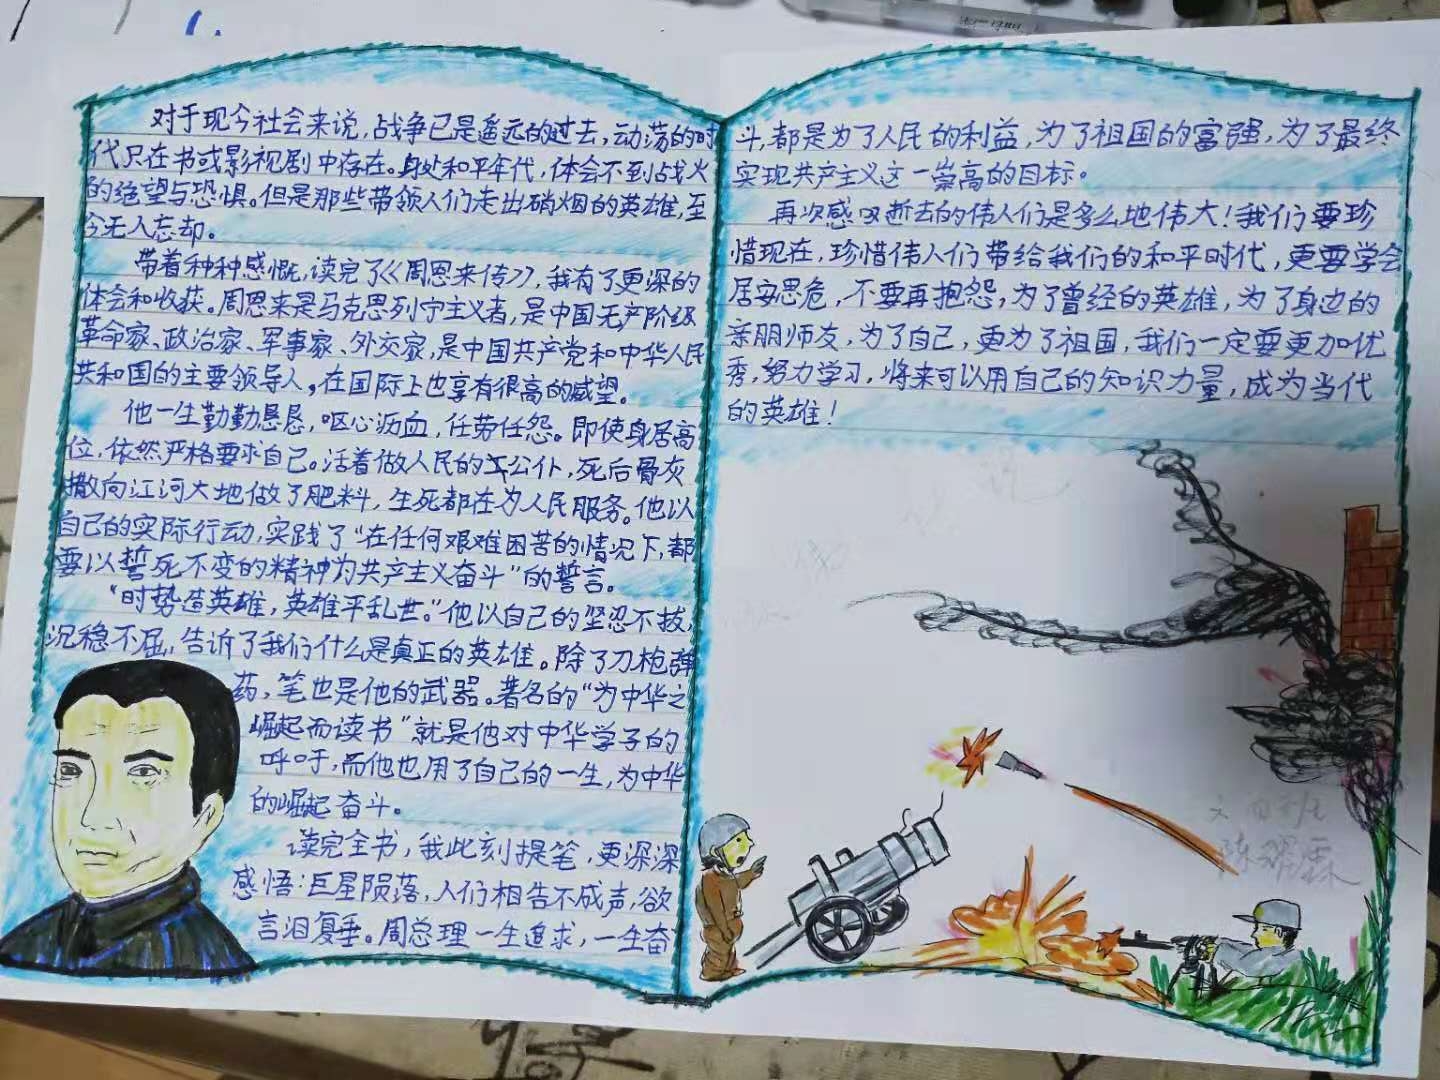 对于现今社会来说,战争已是遥远的过去,动荡的时
代只在书或影视剧中存在。身处和平年代,体会不到战火
的绝望与恐惧。但是那些带领人们走出硝烟的英雄,至
今无人忘却。
带着种种感慨,读完了《周恩来传》,我有了更深的
体会和收获。周恩来是马克思列宁主义者,是中国无产阶级
革命家、政治家、军事家、外交家,是中国共产党和中华人民
共和国的主要领导人。在国际上也享有很高的威望。
他一生勤勤恳恳,呕心沥血,任劳任怨。即使身居高
位,依然严格要求自己。活着做人民的公仆,死后骨灰
撒向江河大地做了肥料,生死都在为人民服务。他以
自己的实际行动,实践了“在任何艰难困苦的情况下,都
要以誓死不变的精神为共产主义奋斗”的誓言。
“时势造英雄,英雄平乱世。”他以自己的坚忍不拔,
沉稳不屈,告诉了我们什么是真正的英雄。除了刀枪弹
药,笔也是他的武器。著名的“为中华之
崛起而读书”就是他对中华学子的
呼吁,而他也用了自己的一生,为中华
的崛起奋斗。
读完全书,我此刻提笔,更深深
感悟:巨星陨落,人们相告不成声,欲
言泪复垂。周总理一生追求,一生奋
斗,都是为了人民的利益,为了祖国的富强,为了最终
实现共产主义这一崇高的目标。
再次感叹逝去的伟人们是多么地伟大!我们要珍
惜现在,珍惜伟人们带给我们的和平时代,更要学会
居安思危,不要再抱怨,为了曾经的英雄,为了身边的
亲朋师友,为了自己,更为了祖国,我们一定要更加优
秀,努力学习,将来可以用自己的知识力量,成为当代
的英雄!